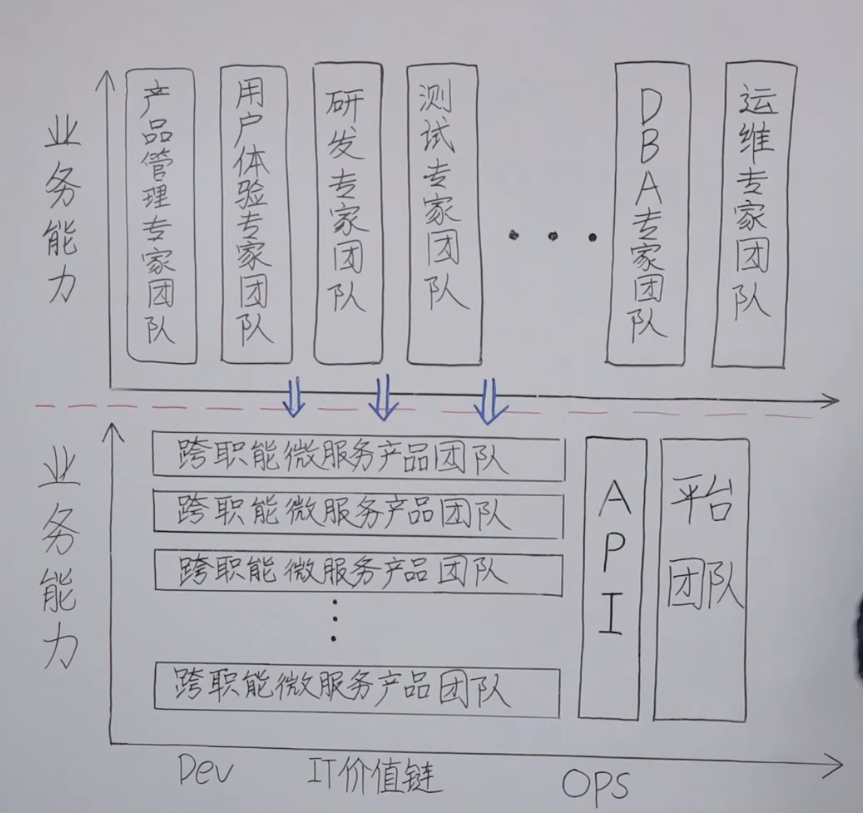 业务能力
产品管理专家团队
用户体验专家团队
研发专家团队
测试专家团队
...
DBA专家团队
运维专家团队
业务能力
跨职能微服务产品团队
跨职能微服务产品团队
跨职能微服务产品团队
⋮
跨职能微服务产品团队
API
平台团队
Dev
IT价值链
OPS